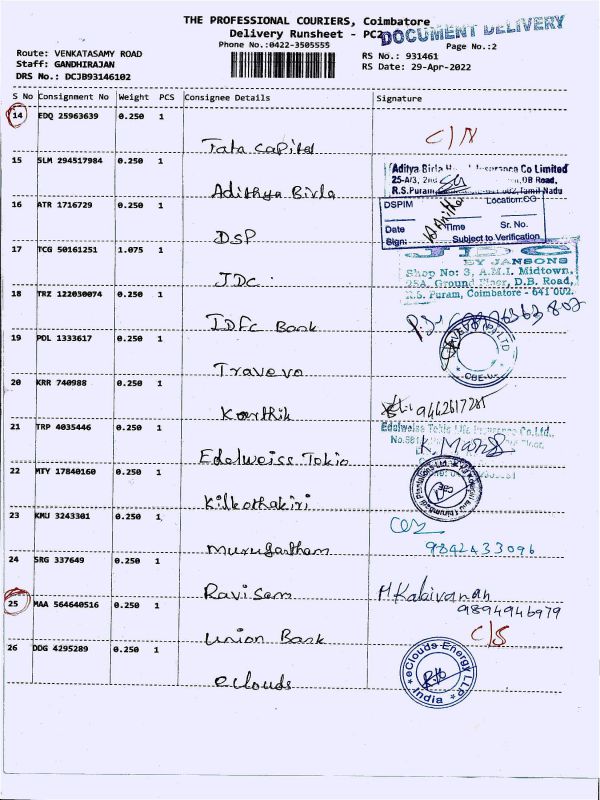 THE PROFESSIONAL COURIERS, Coimbatore
Delivery Runsheet - PC2
DOCUMENT DELIVERY
Phone No.:0422-3505555
Page No.:2
Route: VENKATASAMY ROAD
RS No.: 931461
Staff: GANDHIRAJAN
RS Date: 29-Apr-2022
DRS No.: DCJB93146102
S No Consignment No Weight PCS Consignee Details Signature
14 EDQ 25963639 0.250 1
Tata Capital C/N
15 SLM 294517984 0.250 1
Aditya Birla Insurance Co Limited
25-A/3, 2nd DB Road,
R.S.Puram, 002, Tamil Nadu
Adithya Birla
16 ATR 1716729 0.250 1
DSPIM Location:CG
Date Time Sr. No.
Sign: Subject to Verification
DSP
17 TCG 50161251 1.075 1
JDC
BY JANSONS
Shop No: 3, A.M.I. Midtown,
25A, Ground Floor, D.B. Road,
R.S. Puram, Coimbatore - 641 002.
JDC
18 TRZ 122030074 0.250 1
IDFC Bank
19 POL 1333617 0.250 1
Travevo
20 KRR 740988 0.250 1
Karthik 9442617265
21 TRP 4035446 0.250 1
Edelweiss Tokio Life Insurance Co.Ltd.,
Edelweiss Tokio
22 MTY 17840160 0.250 1
Kilkothakiri
23 KMU 3243301 0.250 1
Murugantham 9842433096
24 SRG 337649 0.250 1
Ravi Sam M Kabivanan
9894946979
25 MAA 564640516 0.250 1
Union Bank C/S
26 DDG 4295289 0.250 1
eClouds
eClouds Energy LLP
India